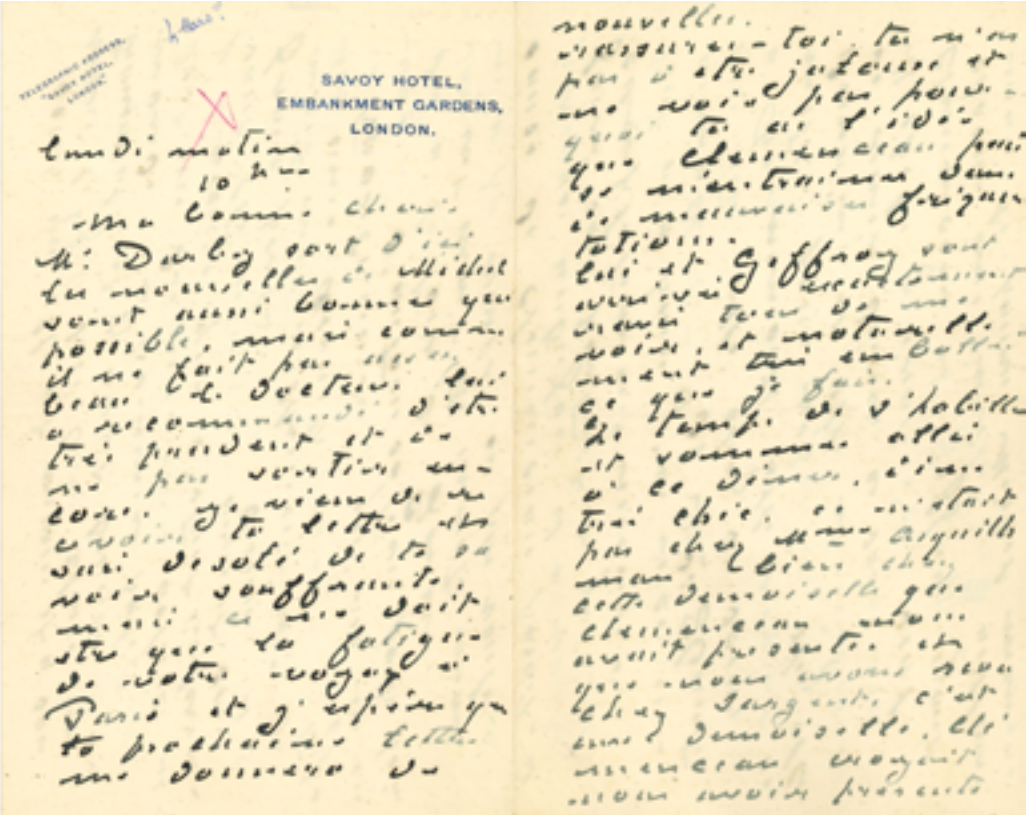 TELEGRAPHIC ADDRESS,
"SAVOY HOTEL,
LONDON."
SAVOY HOTEL,
EMBANKMENT GARDENS,
LONDON.
lundi matin
10 h
Ma bonne cherie
Mr Darbey sort d'ici
les nouvelles de Michel
sont aussi bonnes que
possible, mais comme
il ne fait pas assez
beau le docteur lui
a recommandé d'etre
très prudent et de
ne pas sortir en-
core. je viens de re
cevoir ta lettre et
suis desolé de te sa
voir souffrante,
mais ce ne doit
etre que la fatigue
de votre voyage à
Paris et j'espère que
ta prochaine lettre
me donnera de
nouvelles.
rassures-toi, tu n'as
pas à etre jalouse et
ne vois pas pour-
quoi tu as l'idée
que Clemenceau puis
se m'entrainer dans
de mauvaises fréquen
tations.
lui et Geffroy sont
arrivés exactement
ravis tous de me
voir, et naturelle-
ment emballés
ce que je fais.
le temps de s'habille
et sommes allés
à ce diner, bien
très chic, ce n'etait
pas chez Mme
man bien chez
cette demoiselle que
Clemenceau nous
avait presenté et
que nous avons revu
chez Sargent, c'est
demoiselle. Cle
menceau croyait
nous avoir présenté